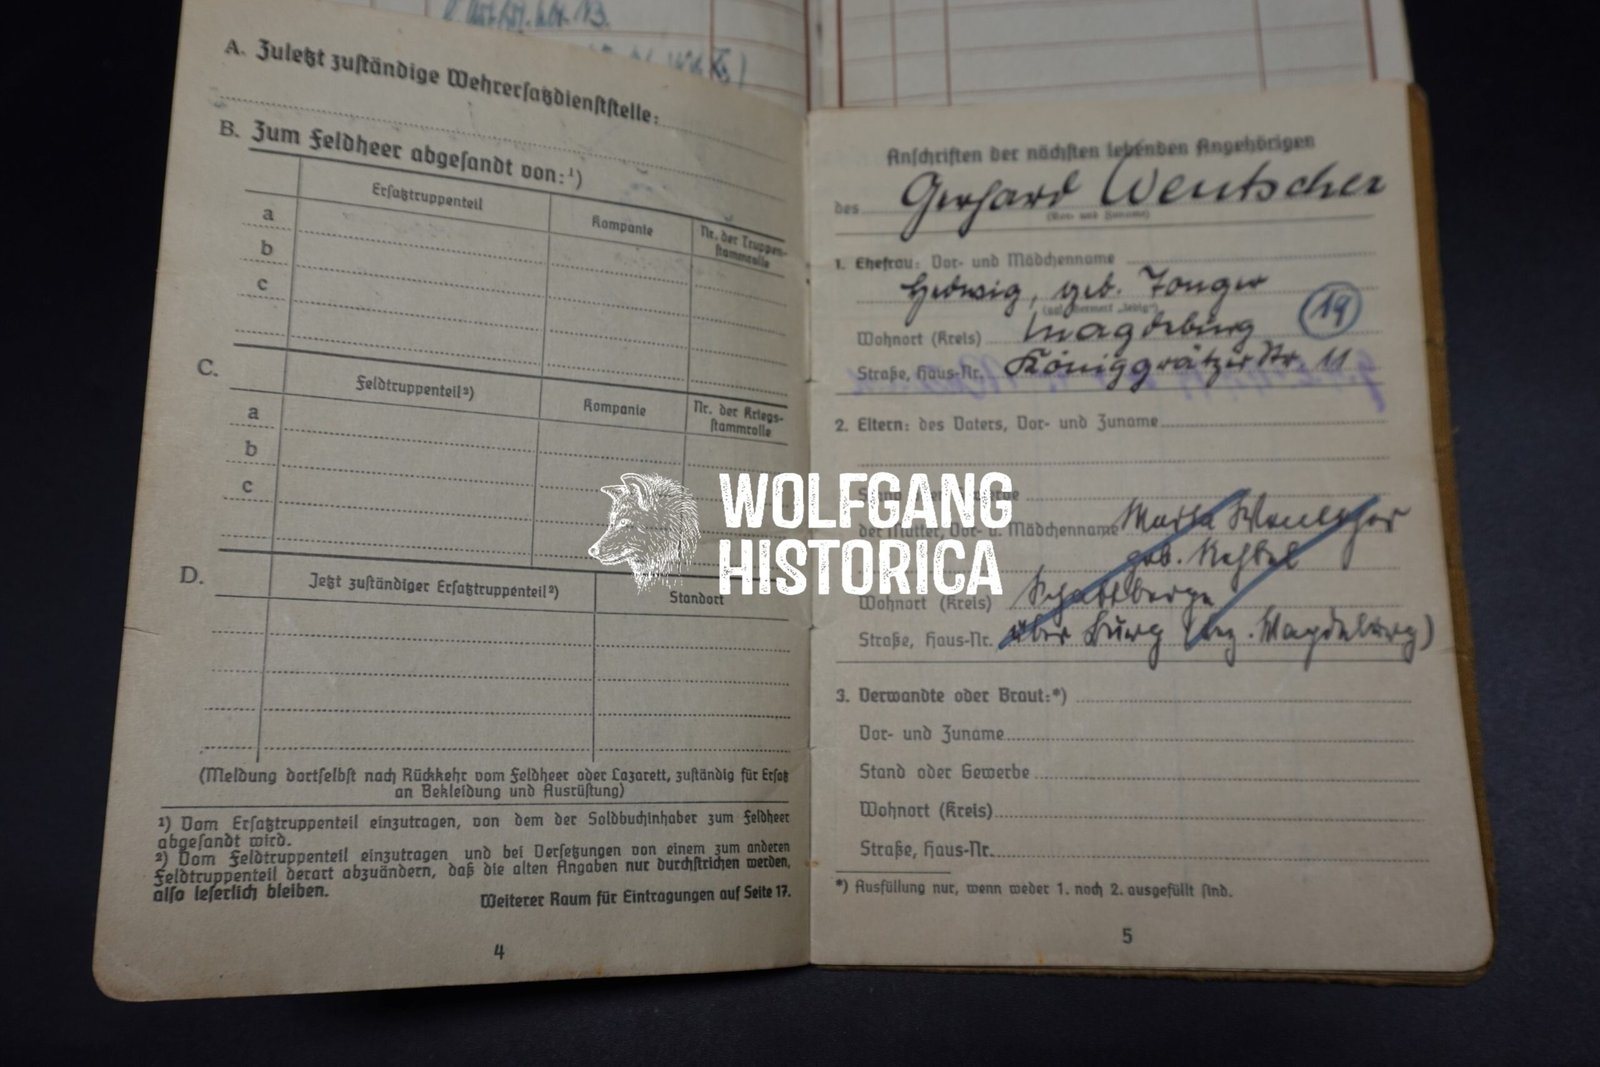 A. Zuletzt zuständige Wehrersatzdienststelle:
B. Zum Feldheer abgesandt von:¹)
Ersatztruppenteil
Kompanie
Nr. der Truppen-
stammrolle
a
b
c
C.
Feldtruppenteil²)
Kompanie
Nr. der Kriegs-
stammrolle
a
b
c
D.
Jetzt zuständiger Ersatztruppenteil²)
Standort
(Meldung dortselbst nach Rückkehr vom Feldheer oder Lazarett, zuständig für Ersatz
an Bekleidung und Ausrüstung)
¹) Vom Ersatztruppenteil einzutragen, von dem der Soldbuchinhaber zum Feldheer
abgesandt wird.
²) Vom Feldtruppenteil einzutragen und bei Versetzungen von einem zum anderen
Feldtruppenteil derart abzuändern, daß die alten Angaben nur durchstrichen werden,
also leserlich bleiben.
Weiterer Raum für Eintragungen auf Seite 17.
4
Anschriften der nächsten lebenden Angehörigen
des Gerhard Wentscher
(Vor- und Zuname)
1. Ehefrau: Vor- und Mädchenname
Hedwig, geb. Tonger
(ggf. Vermerk „ledig“)
Wohnort (Kreis) Magdeburg
19
Straße, Haus-Nr. Königgrätzer Str. 11
2. Eltern: des Vaters, Vor- und Zuname
Stand oder Gewerbe
der Mutter, Vor- u. Mädchenname
geb.
Wohnort (Kreis) Schattberge
Straße, Haus-Nr. über Burg (bez. Magdeburg)
3. Verwandte oder Braut:*)
Vor- und Zuname
Stand oder Gewerbe
Wohnort (Kreis)
Straße, Haus-Nr.
*) Ausfüllung nur, wenn weder 1. noch 2. ausgefüllt sind.
5
WOLFGANG
HISTORICA